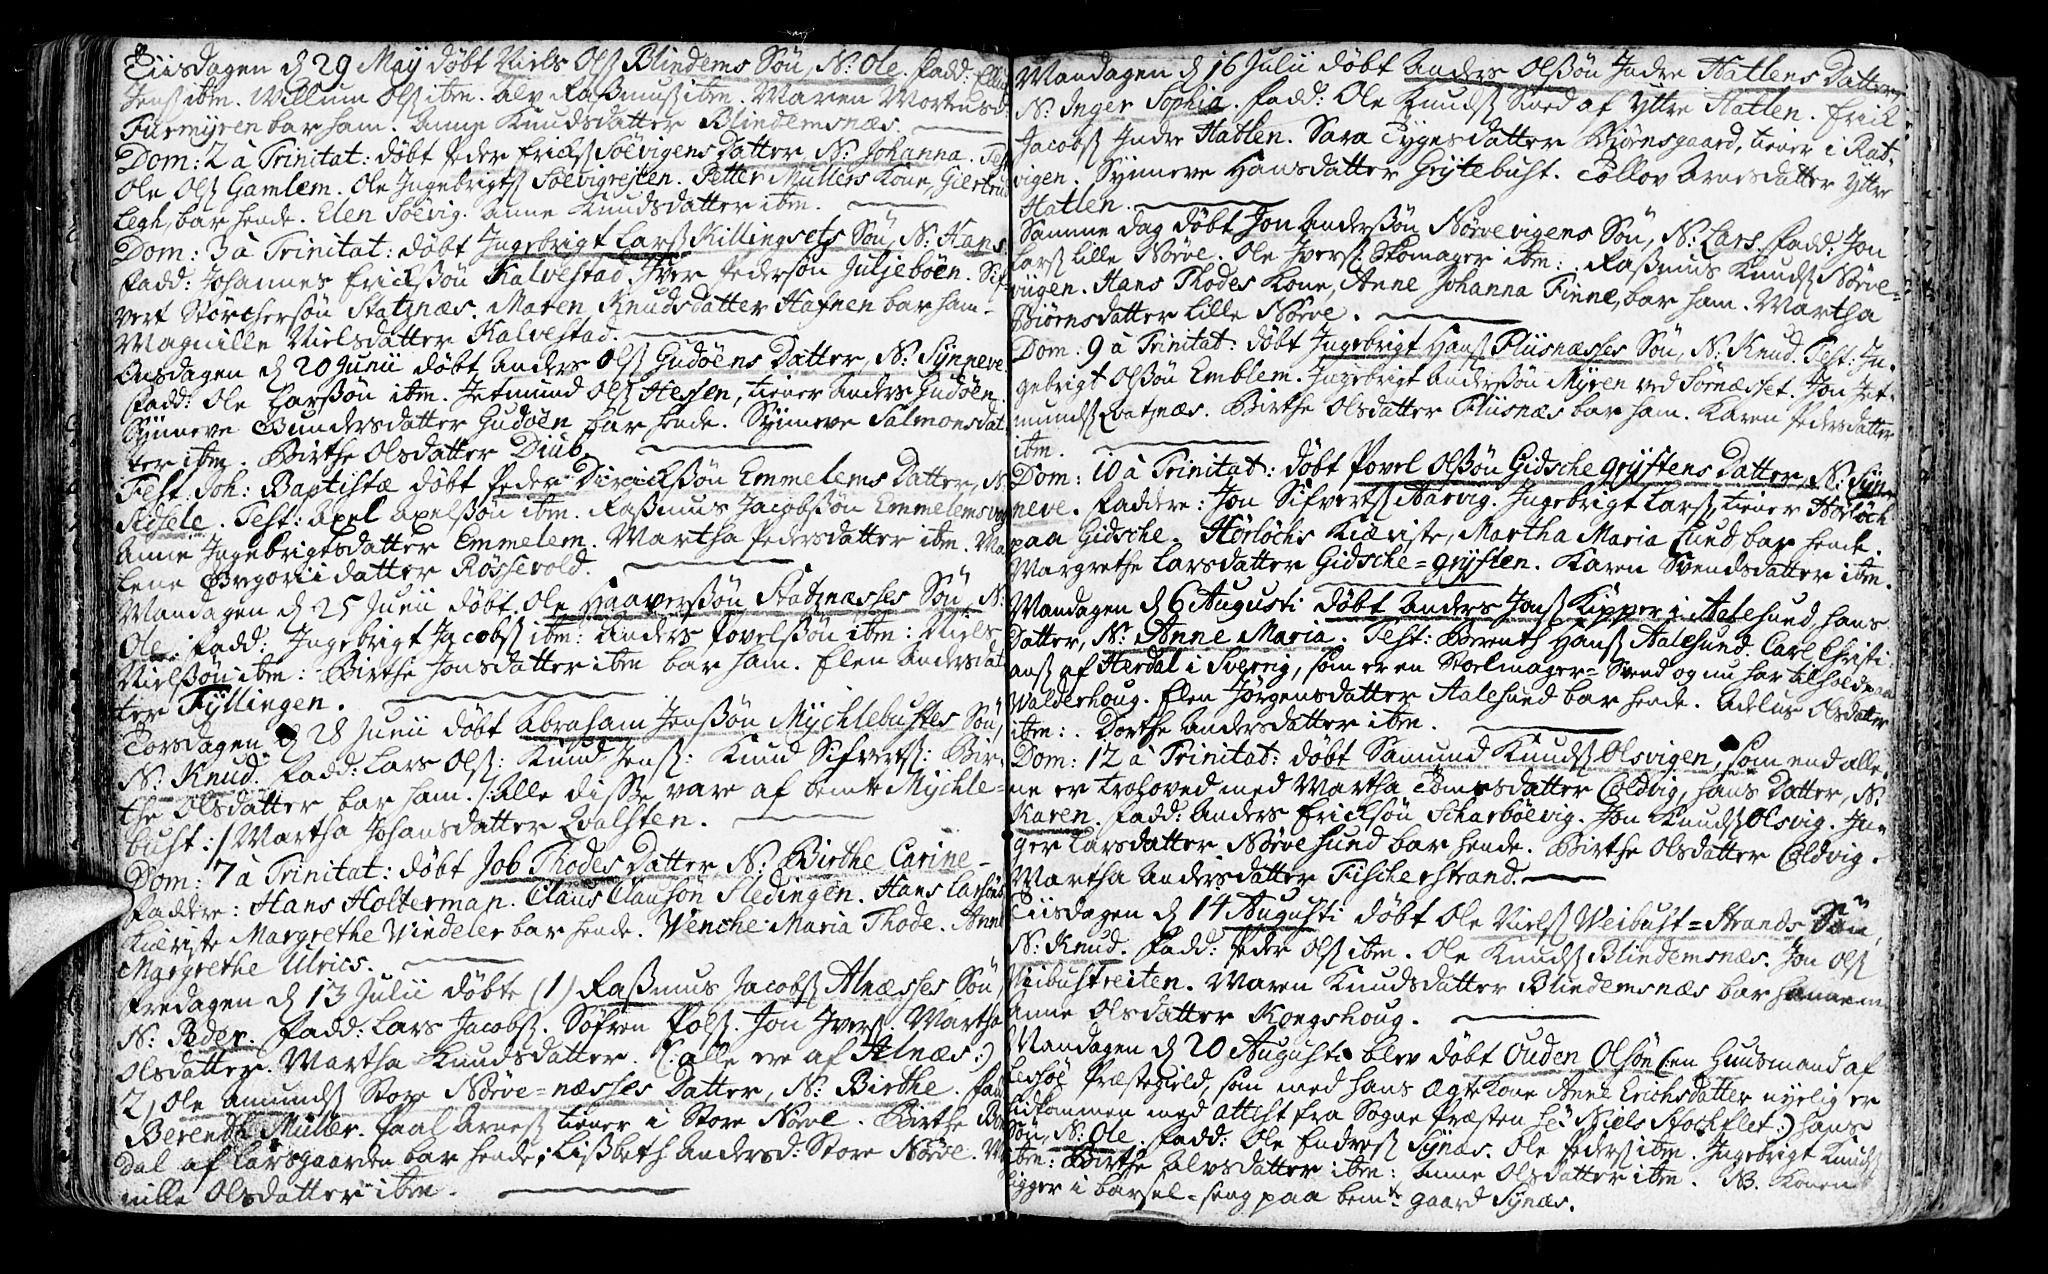 Tiisdagen d 29 May døbt Niels Olß Blindems Søn, N: Ole. Fadd: Elling
Jenß ibm. Willum Olß ibm. Alv Raßmusß ibm. Maren Mortensd:
Furmyren bar ham. Anne Knudsdatter Blindemsnæs.
Dom: 2 à Trinitat: døbt Peder Erickß Søevigens Datter N: Johanna. Test:
Ole Olß Gamlem. Ole Ingebrigtß Søevigrejten. Petter Müllers Kone, Giertrud
Legh, bar hende. Elen Søevig. Anne Knudsdatter ibm.
Dom: 3 à Trinitat: døbt Ingebrigt Larß Killingsets Søn, N: Hans
Fadd: Johannes Erickßøn Kalvestad. Iver Pedersøn Juljebøen. Sif-
vert Størchersøn Statznæs. Maren Knudsdatter Hafnen bar ham.
Magnille Nielsdatter Kalvestad.
Onsdagen d 20 Junii døbt Anders Olß Gudøens Datter, N: Synneve.
Fadd: Ole Larßøn ibm. Jetmund Olß Hessen, tiener Anders Gudøen.
Synneve Gundersdatter Gudøen bar hende. Synneve Salmonsdat-
ter ibm. Birthe Olsdatter Diub.
Fest: Joh: Baptistæ døbt Peder Dirickßøn Emmelems Datter, N:
Adsele. Test: Axel Axelßøn ibm. Raßmus Jacobßøn Emmelemsvog
Anne Ingebrigtsdatter Emmelem. Martha Pedersdatter ibm. Ma-
lene Gregorii datter Røssevold.
Mandagen d 25 Junii døbt Ole Haaverßøn Statznæsses Søn, N:
Ole. Fadd: Ingebrigt Jacobß ibm: Anders Povelßøn ibm: Niels
Nielßøn ibm: Birthe Jonsdatter ibm bar ham. Elen Andersdat-
ter Fyllingen.
Torsdagen d 28 Junii døbt Abraham Jenßøn Mychlebustes Søn,
N: Knud. Fadd: Lars Olß: Knud Jenß: Knud Sifvertß: Bir-
the Olsdatter bar ham. /: Alle disse vare af bemte Mychle-
bust :/ Martha Johansdatter Qvalsten.
Dom: 7 à Trinitat: døbt Job Thodes Datter, N: Birthe Carine.
Faddere: Hans Holterman. Claus Clausøn Sledingen. Hans Larsøns
Kiæriste Margrethe Vindeler bar hende. Venche Maria Thode. Anne
Margrethe Ulrics.
Fredagen d 13 Julii døbte (1) Raßmus Jacobß Alnæsses Søn
N: Peder. Fadd: Lars Jacobß. Søfren Polß. Jon Iverß. Martha
Olsdatter. Martha Knudsdatter. (: alle ere af Alnæs :)
2) Ole Amundß Store Nørve=næsses Datter, N: Birthe. Fadd:
Berendh Mülær. Paal Arneß tiener i Store Nørve. Birthe
dal af Larsgaarden bar hende; Lißbeth Andersd: Store Nørve. M
nille Olsdatter ibm.
Mandagen d 16 Julii døbt Anders Olßøn Indre Hatlens Datter
N: Inger Sophia. Fadd: Ole Knudß Roed af Yttre Hatlen. Erick
Jacobß Indre Hatlen. Sara Tygesdatter Biørnsgaard, tiener i Rat-
vigen. Synneve Hansdatter Grytebust. Tollov Arnesdatter Yttre
Hatlen.
Samme dag døbt Jon Anderßøn Nørvevigens Søn, N: Lars. Fadd: Jon
Larß Lille Nørve. Ole Iverß. Skomager ibm: Raßmus Knudß Nørve=
viigen. Hans Thodes Kone, Anne Johanna Finne, bar ham. Martha
Biørnsdatter Lille Nørve.
Dom: 9 à Trinitat: døbt Ingebrigt Hanß Fliisnæsses Søn, N: Knud. Test: In-
gebrigt Olßøn Emblem. Ingebrigt Anderßøn Myren ved Sørnæsset. Jon Jet-
mundß Qvatznæs. Birthe Olsdatter Fliisnæs bar ham. Karen Pedersdatter
ibm.
Dom: 10 à Trinitat: døbt Povel Olßøn Gidsche grystens Datter, N: Syn-
neve. Faddere: Jon Sifvertß Aarvig. Ingebrigt Larß, tiener Hørløch
paa Gidsche. Hørløchs Kiæriste, Martha Maria Lund bar hende.
Margrethe Larsdatter Gidsche=grysten. Karen Svendsdatter ibm.
Mandagen d 6 Augusti døbt Anders Jonß Kipper i Aalesund hans
Datter, N: Anne Maria. Test: Berenth Hanß Aalesund. Carl Christi-
anß af Herdal i Sverrig, som er en Stoelmager=Svend og nu har tilhold paa
Walderhoug. Elen Jørgensdatter Aalesund bar hende. Adelus Olsdatter
ibm: Dorthe Andersdatter ibm.
Dom: 12 à Trinitat: døbt Samund Knudß Olsvigen, som end alle-
ne er trohoved med Martha Tomesdatter Coldvig, hans Datter, N:
Karen. Fadd: Anders Ericksøn Scharbøevig. Jon Knudß Olsvig. In-
ger Larsdatter Nørvesund bar hende. Birthe Olsdatter Coldvig.
Martha Andersdatter Fischerstrand.
Tiisdagen d 14 Augusti døbt Ole Nielß Weibust=Strands Søn,
N: Knud. Fadd: Peder Olß ibm. Ole Knudß Blindemsnæs. Jon Olß
Veibustreiten. Maren Knudsdatter Blindemsnæs bar hannem
Anne Olsdatter Kongshoug.
Mandagen d 20 Augusti blev døbt Ouden Olsøn (en Huusmand af
Lessøe Præstegield, som med hans Ægte Kone Anne Erichsdatter nyelig er
hidkommen med Attest fra Sogne Præsten Hr: Niels Stochflet:) hans
Søn, N: Ole. Fadd: Ole Endreß Synæs. Ole Pederß ibm. Ingebrigt Knudß
ibm: Birthe Alvsdatter ibm: Anne Olsdatter ibm. NB. Konen
ligger i barsel=seng paa bemte gaard Synæs.